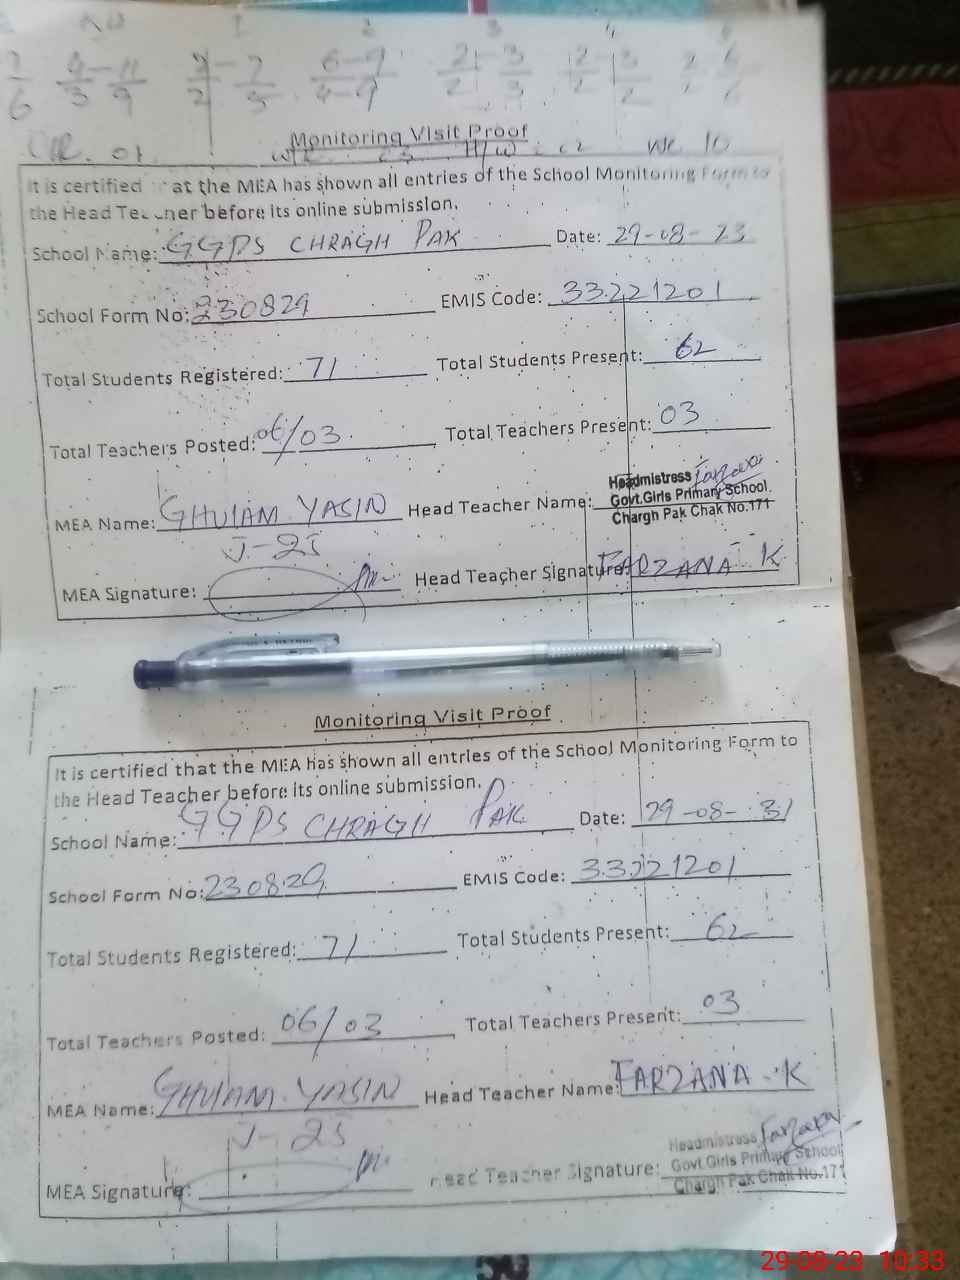 Monitoring Visit Proof
It is certified at the MEA has shown all entries of the School Monitoring Form to
the Head Teacher before its online submission.
School Name: GGPS CHRAGH PAK Date: 29-08-23
School Form No: 230829 EMIS Code: 33221201
Total Students Registered: 71 Total Students Present: 62
Total Teachers Posted: 06/03 Total Teachers Present: 03
Headmistress Farzana
MEA Name: GHULAM YASIN Head Teacher Name: Govt.Girls Primary School
Chargh Pak Chak No.171
J-25
MEA Signature: Head Teacher Signature: FARZANA K
Monitoring Visit Proof
It is certified that the MEA has shown all entries of the School Monitoring Form to
the Head Teacher before its online submission.
School Name: GGPS CHRAGH PAK Date: 29-08-31
School Form No: 230829 EMIS Code: 33221201
Total Students Registered: 71 Total Students Present: 62
Total Teachers Posted: 06/03 Total Teachers Present: 03
MEA Name: GHULAM YASIN Head Teacher Name: FARZANA K
J-25
Headmistress Farzana
MEA Signature: Head Teacher Signature: Govt.Girls Primary School
Chargh Pak Chak No.171
29-08-23 10:33